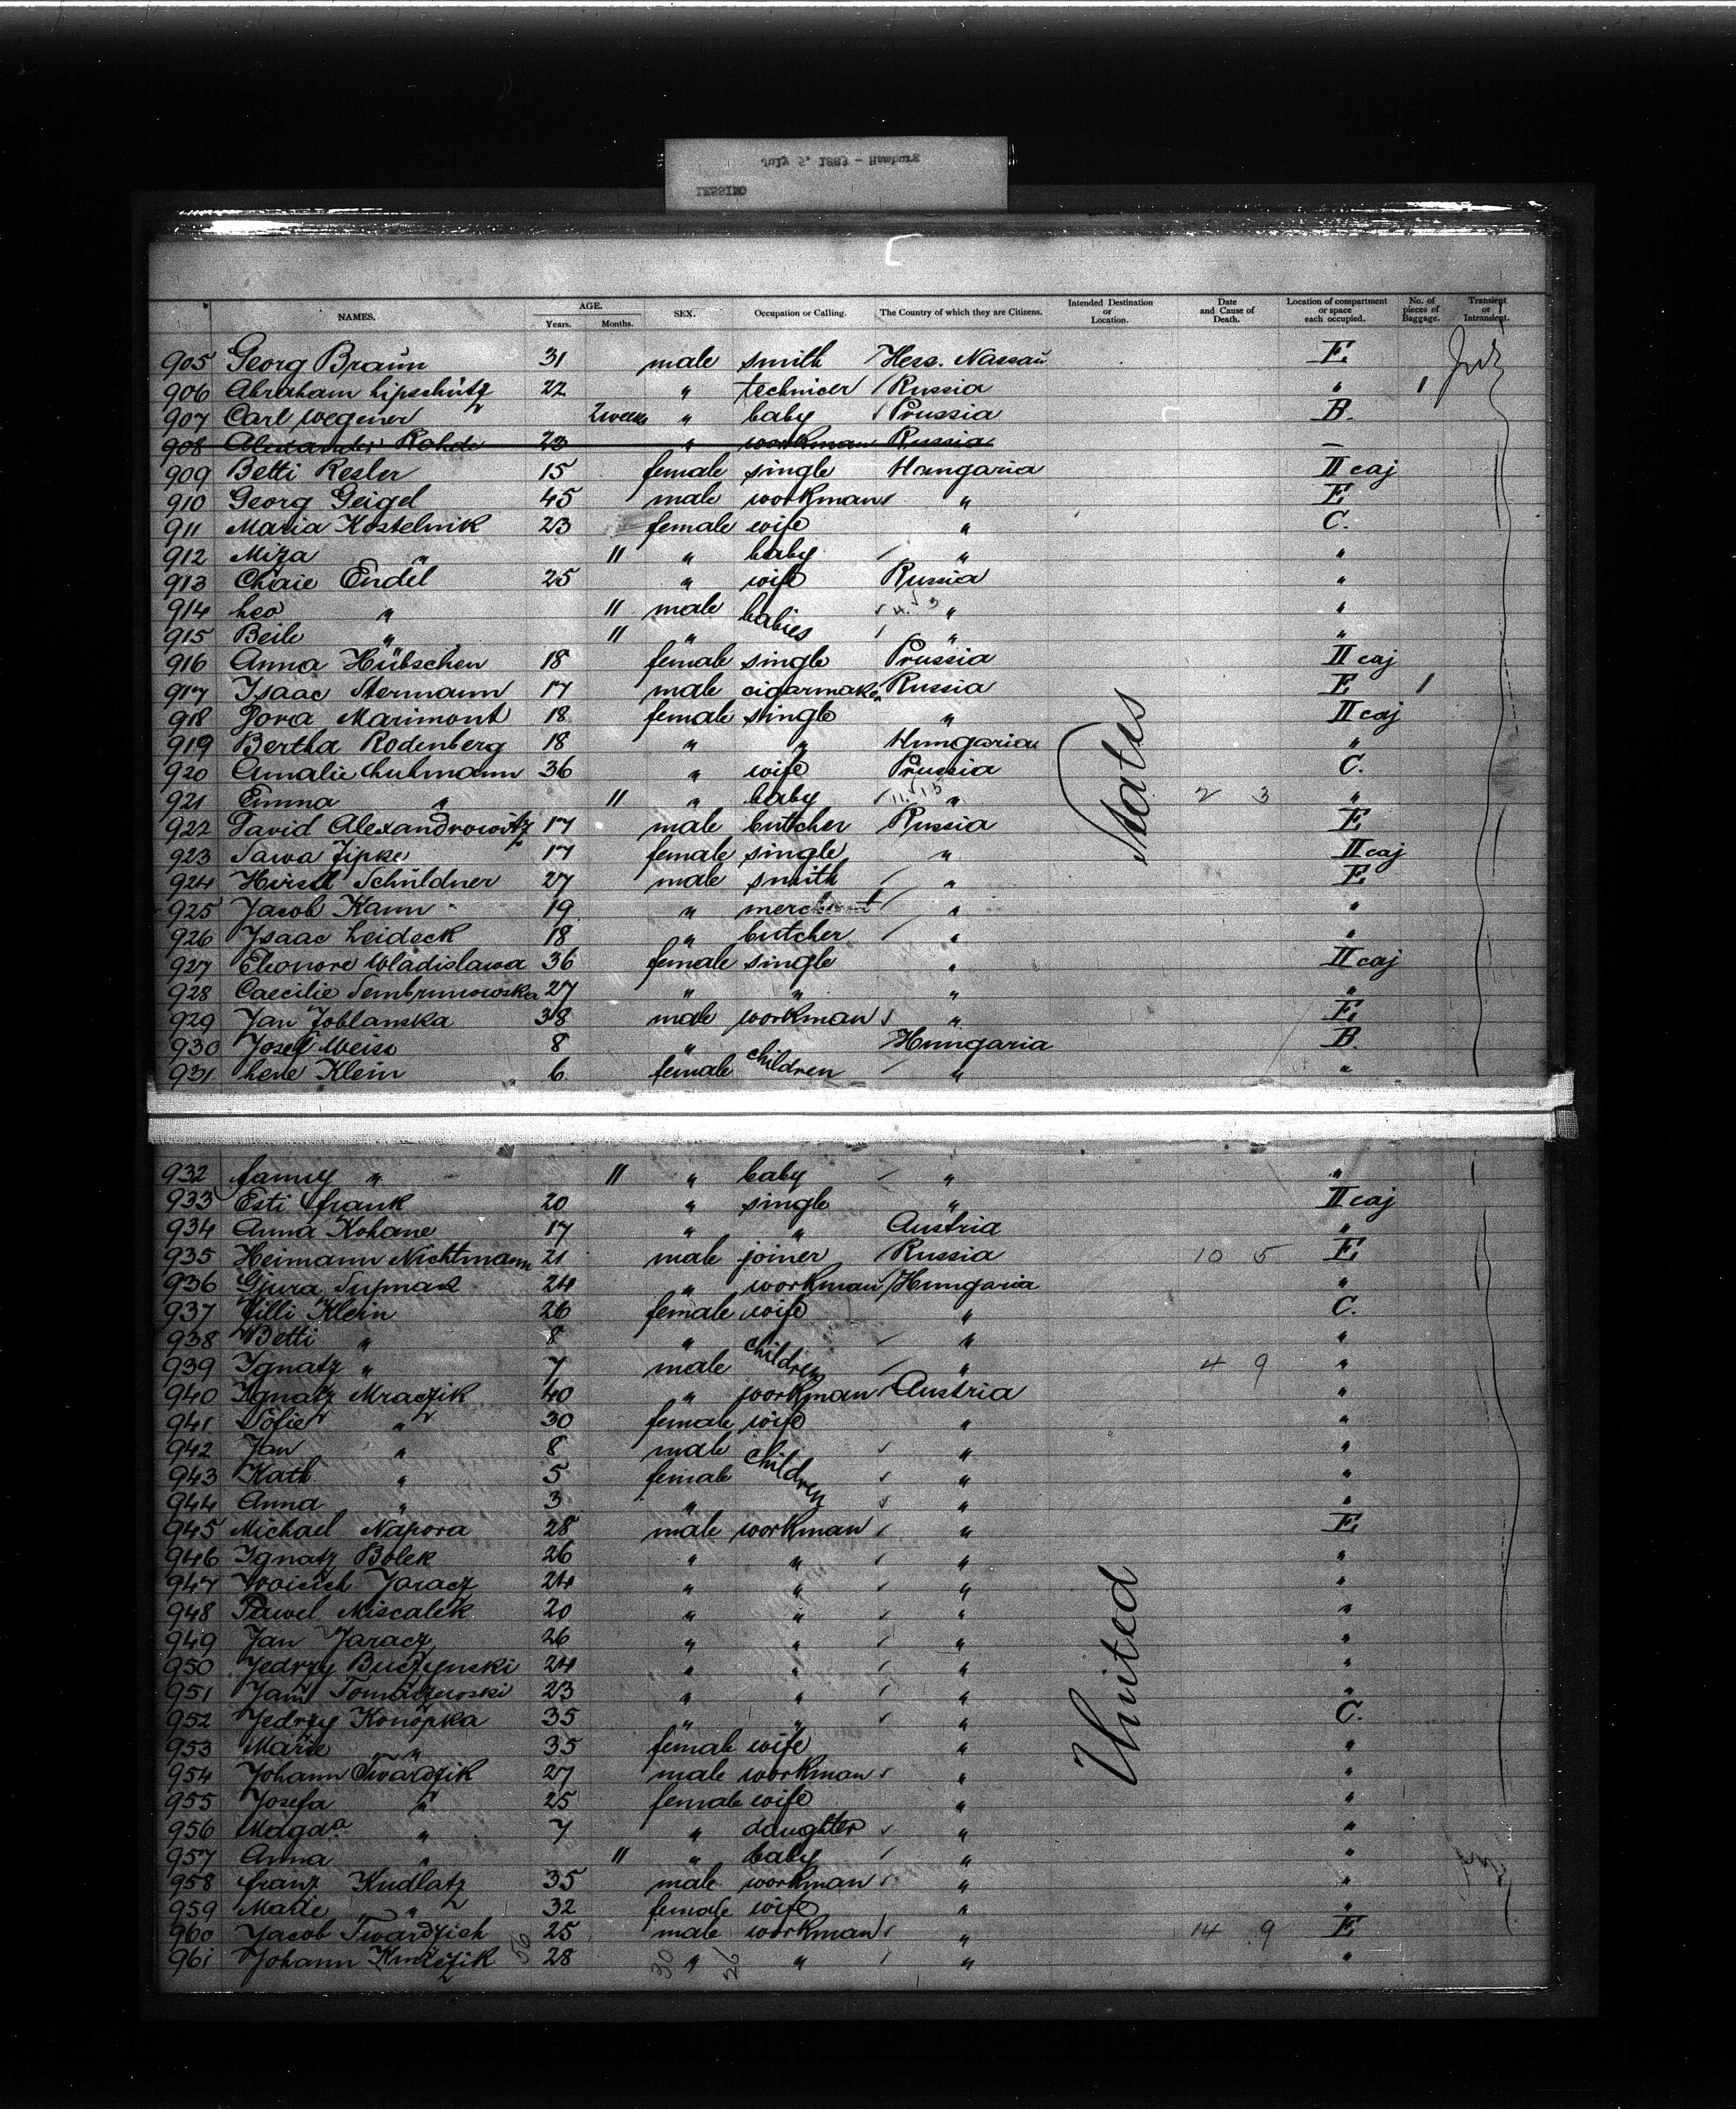 July 5, 1883 - Hamburg
LESSING
NAMES. AGE. Years. Months. SEX. Occupation or Calling. The Country of which they are Citizens. Intended Destination or Location. Date and Cause of Death. Location of compartment or space each occupied. No. of pieces of Baggage. Transient or Intransient.
905 Georg Braun 31 male smith Hess. Nassau E
906 Abraham Lipschütz 22 " technicer Russia " 1
907 Carl Wegener 2 weeks " baby Prussia B.
908 Alexander Rohde 23 " workman Russia —
909 Betti Resler 15 female single Hungaria II caj
910 Georg Geigel 45 male workman " E
911 Maria Kostelnik 23 female wife " C.
912 Miza " 11 " baby " "
913 Chaie Endel 25 " wife Russia "
914 Leo " 11 male babies " "
915 Beile " 11 " " "
916 Anna Hübschen 18 female single Prussia II caj
917 Isaac Stermann 17 male cigarmaker Russia E 1
918 Dora Marimont 18 female single " II caj
919 Bertha Rodenberg 18 " " Hungaria "
920 Amalie Luhmann 36 " wife Prussia C.
921 Emma " 11 " baby " 2 3 "
922 David Alexandrowitz 17 male butcher Russia E
923 Sawa Zipke 17 female single " II caj
924 Hirsch Schildner 27 male smith " E
925 Jacob Kann 19 " merchant " "
926 Isaac Leideck 18 " butcher " "
927 Eleonore Wladislawa 36 female single " II caj
928 Caecilie Sembrunowska 27 " " " "
929 Jan Joblanska 38 male workman " E
930 Josef Weiss 8 " children Hungaria B.
931 Lene Klein 6 female " "
932 Fanny " 11 " baby " "
933 Esti Frank 20 " single " II caj
934 Anna Kohane 17 " " Austria "
935 Heimann Nichtmann 21 male joiner Russia 10 5 E
936 Gjura Supmak 24 " workman Hungaria "
937 Zilli Klein 26 female wife " C.
938 Betti " 8 " children " "
939 Ignatz " 7 male " 4 9 "
940 Ignatz Mraczik 40 " workman Austria "
941 Sofie " 30 female wife " "
942 Jan " 8 male children " "
943 Kath " 5 female " "
944 Anna " 3 " " "
945 Michael Napora 28 male workman " E
946 Ignatz Bolek 26 " " " "
947 Woicich Jaracz 24 " " " "
948 Pawel Miscalek 20 " " " "
949 Jan Jaracz 26 " " " "
950 Jedrzy Buczynski 24 " " " "
951 Jan Tomaczewoski 23 " " " "
952 Jedrzy Konopka 35 " " " C.
953 Marie " 35 female wife " "
954 Johann Twardzik 27 male workman " "
955 Josefa " 25 female wife " "
956 Magda " 7 " daughter " "
957 Anna " 11 " baby " "
958 Franz Kudlatz 35 male workman " "
959 Marie " 32 female wife " "
960 Jacob Twardzich 25 male workman " 14 9 E
961 Johann 28 " " " "
56 30 26
United States